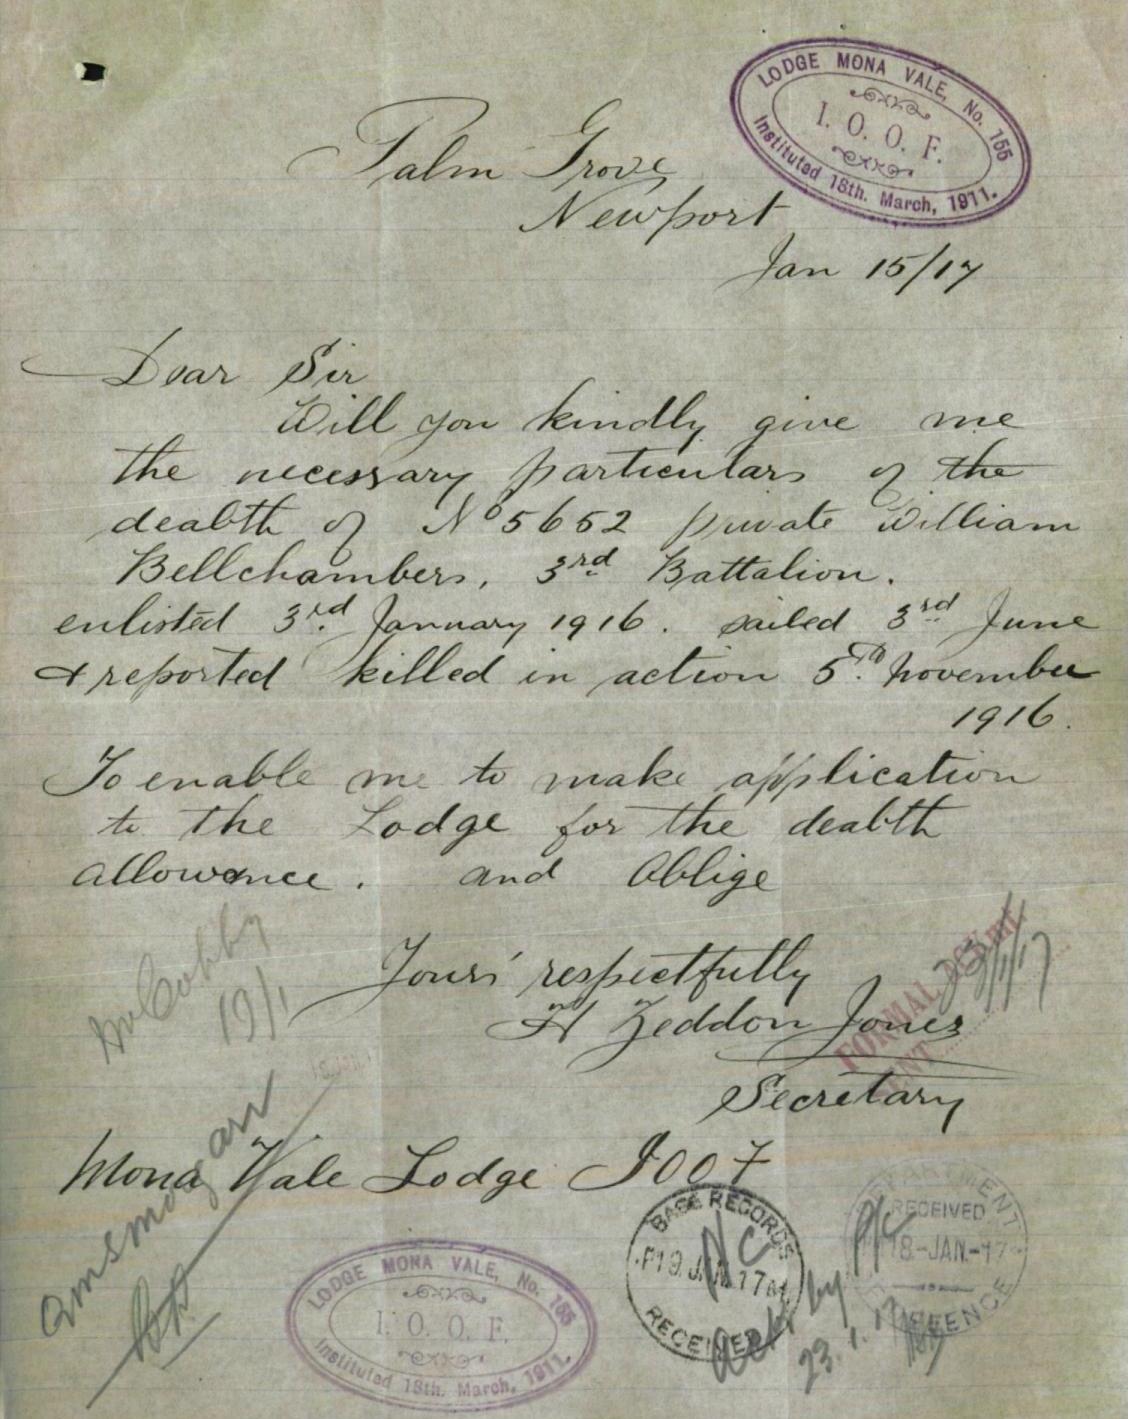 LODGE MONA VALE, No. 155
I. O. O. F.
Instituted 18th. March, 1911.
Palm Grove
Newport
Jan 15/17
Dear Sir
Will you kindly give me
the necessary particulars of the
deabth of No 5652 private William
Bellchambers, 3rd Battalion.
enlisted 3rd January 1916. sailed 3rd June
& reported killed in action 5th November
1916.
To enable me to make application
to the Lodge for the deabth
allowance. and Oblige
Yours respectfully
H Zeddon Jones
Secretary
FORMAL
SENT
19/1
Mona Vale Lodge IOOF
BASE RECORDS
RECEIVED
RECEIVED
18-JAN-17
DEFENCE
by
23.1.17
LODGE MONA VALE, No. 155
I. O. O. F.
Instituted 18th. March, 1911.